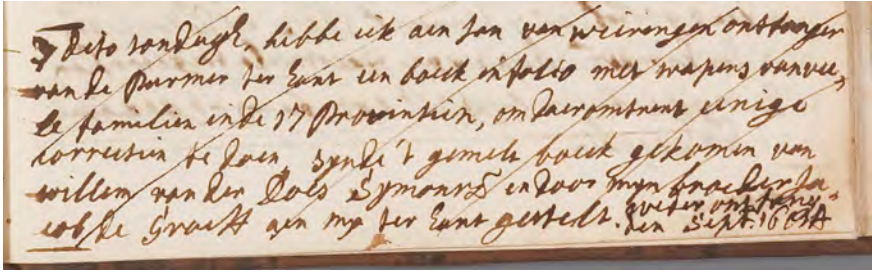 7 dito sondagh, hebbe ick aen Jan van wieringen ontfanger
van de Purmer ter hant een boeck in folio met wapens van vee,,
le familien in de 17 Provintien, om daeromtrent eenige
correctien te doen, synde 't gemelte boeck gekomen van
willem van der Does Symonsz en door myn broeder Ja,,
cob de Graeff aen my ter hant gestelt. weder ontfangen
den Sept. 1663